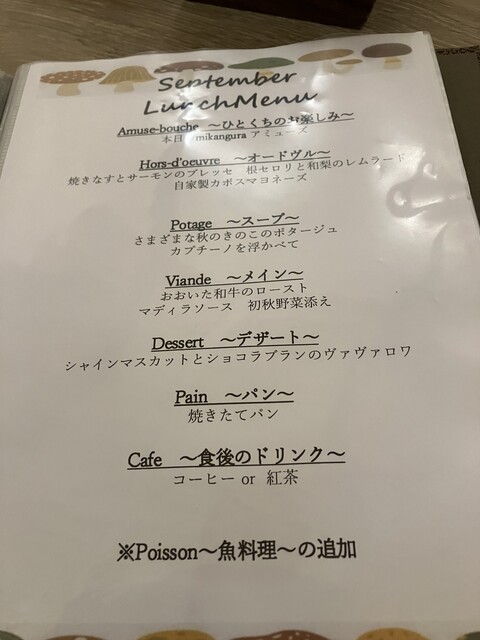 September
LunchMenu
Amuse-bouche ～ひとくちのお楽しみ～
本日のmikangura アミューズ
Hors-d'oeuvre ～オードヴル～
焼きなすとサーモンのプレッセ 根セロリと和梨のレムラード
自家製カボスマヨネーズ
Potage ～スープ～
さまざまな秋のきのこのポタージュ
カプチーノを浮かべて
Viande ～メイン～
おおいた和牛のロースト
マディラソース 初秋野菜添え
Dessert ～デザート～
シャインマスカットとショコラブランのヴァヴァロワ
Pain ～パン～
焼きたてパン
Cafe ～食後のドリンク～
コーヒー or 紅茶
※Poisson～魚料理～の追加